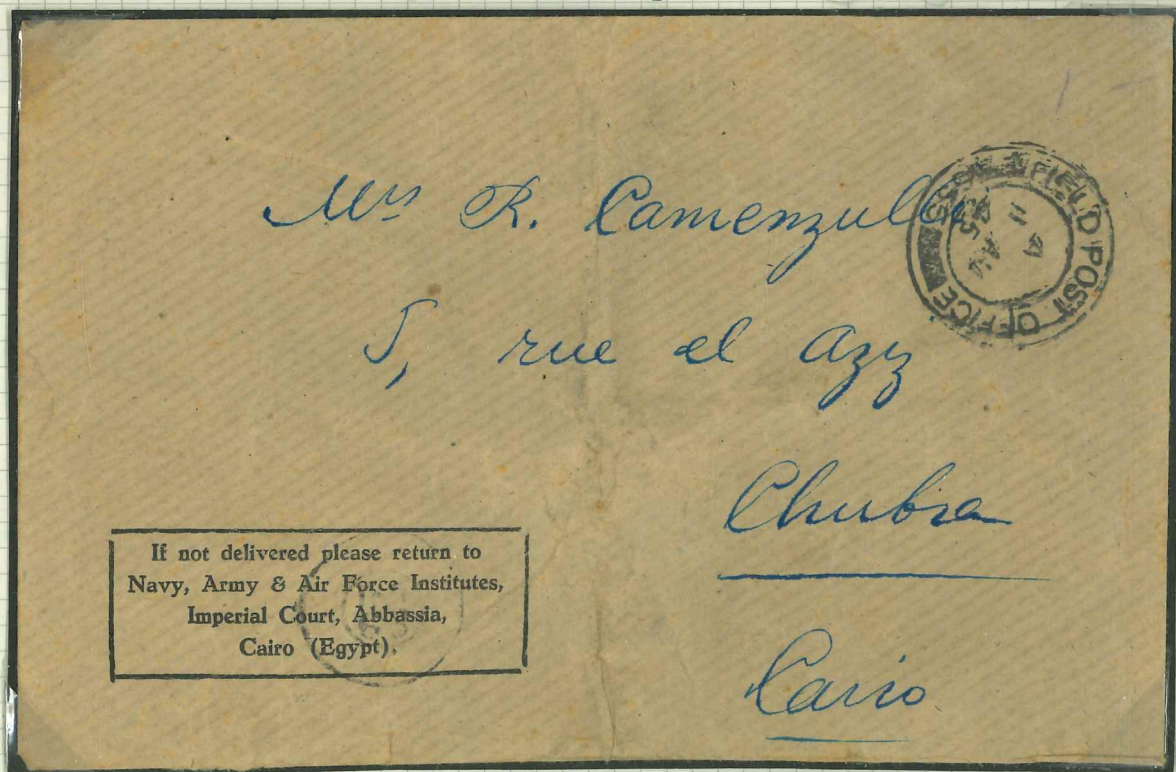 Mrs R. Camenzulli
5, rue el Azz
Chubra
Cairo
FIELD POST OFFICE
If not delivered please return to
Navy, Army & Air Force Institutes,
Imperial Court, Abbassia,
Cairo (Egypt).